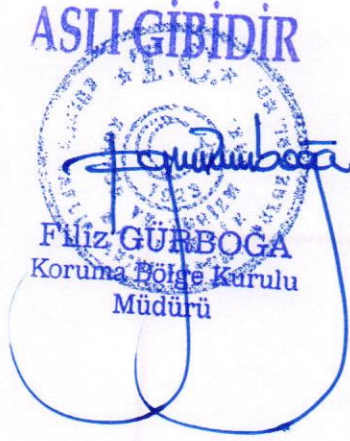 ASLI GİBİDİR
T.C.
Filiz GÜRBOĞA
Koruma Bölge Kurulu
Müdürü